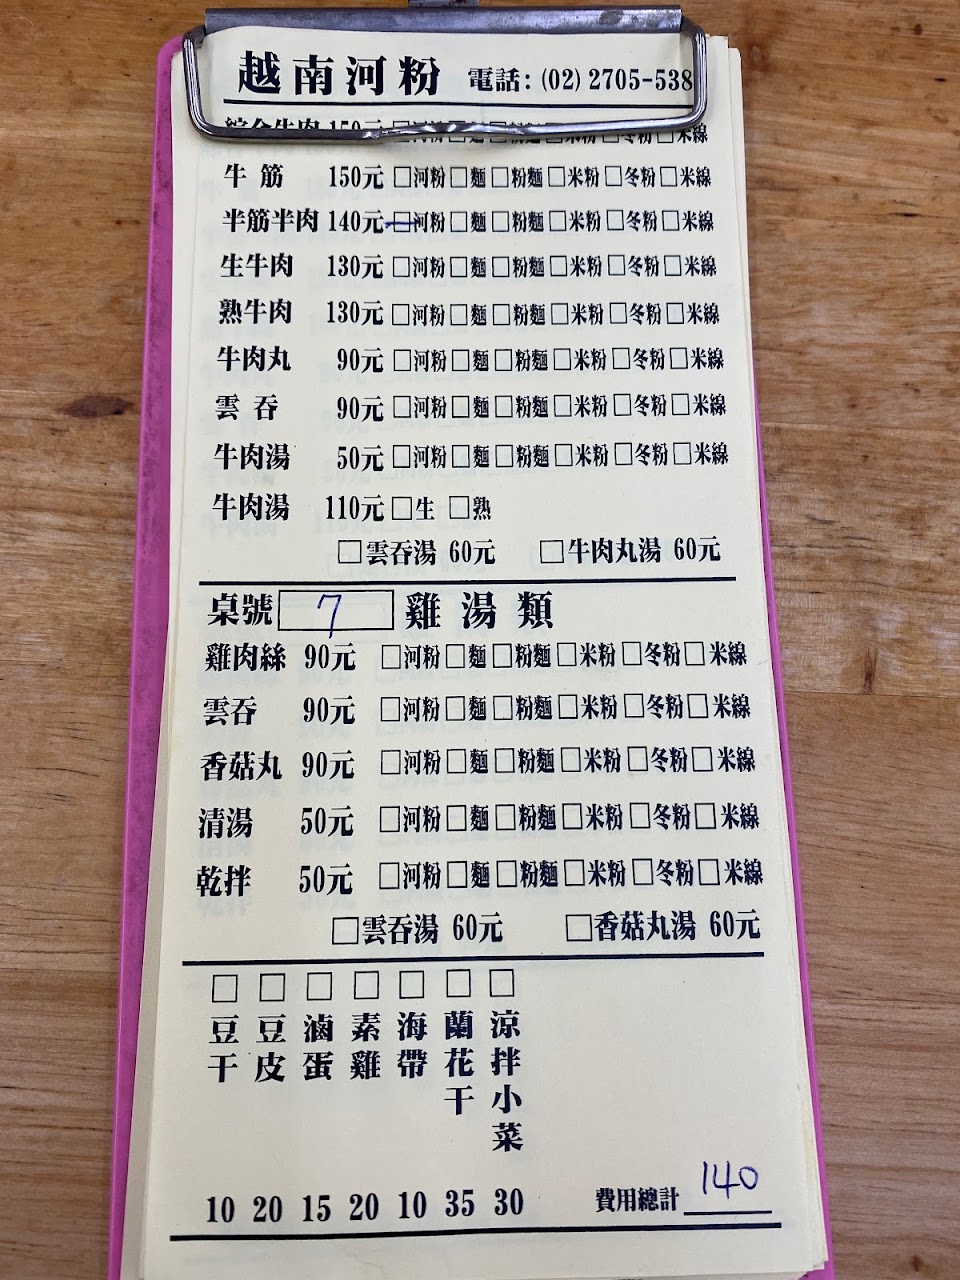 越南河粉 電話：(02) 2705-538
綜合牛肉 150元 □河粉□麵□粉麵□米粉□冬粉□米線
牛筋 150元 □河粉□麵□粉麵□米粉□冬粉□米線
半筋半肉 140元 □河粉□麵□粉麵□米粉□冬粉□米線
生牛肉 130元 □河粉□麵□粉麵□米粉□冬粉□米線
熟牛肉 130元 □河粉□麵□粉麵□米粉□冬粉□米線
牛肉丸 90元 □河粉□麵□粉麵□米粉□冬粉□米線
雲吞 90元 □河粉□麵□粉麵□米粉□冬粉□米線
牛肉湯 50元 □河粉□麵□粉麵□米粉□冬粉□米線
牛肉湯 110元 □生 □熟
□雲吞湯 60元 □牛肉丸湯 60元
桌號 7 雞湯類
雞肉絲 90元 □河粉□麵□粉麵□米粉□冬粉□米線
雲吞 90元 □河粉□麵□粉麵□米粉□冬粉□米線
香菇丸 90元 □河粉□麵□粉麵□米粉□冬粉□米線
清湯 50元 □河粉□麵□粉麵□米粉□冬粉□米線
乾拌 50元 □河粉□麵□粉麵□米粉□冬粉□米線
□雲吞湯 60元 □香菇丸湯 60元
□豆干 10
□豆皮 20
□滷蛋 15
□素雞 20
□海帶 10
□蘭花干 35
□涼拌小菜 30
費用總計 140